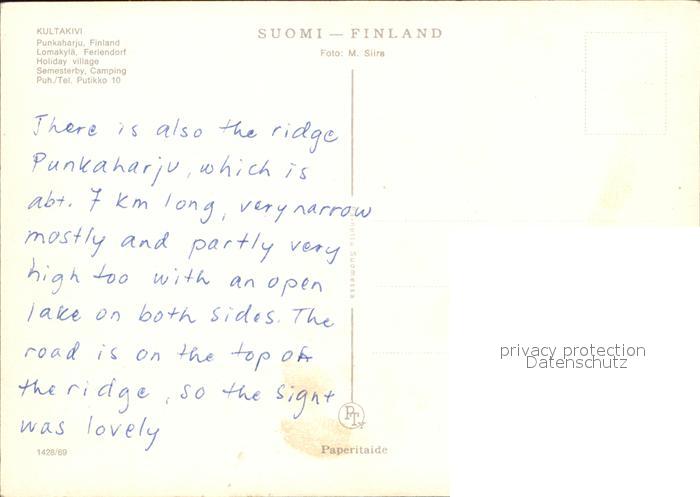 KULTAKIVI
Punkaharju, Finland
Lomakylä, Feriendorf
Holiday village
Semesterby, Camping
Puh./Tel. Putikko 10
SUOMI — FINLAND
Foto: M. Siira
There is also the ridge
Punkaharju, which is
abt. 7 km long, very narrow
mostly and partly very
high too with an open
lake on both sides. The
road is on the top of
the ridge, so the sight
was lovely
Suomessa
privacy protection
Datenschutz
PTy
Paperitaide
1428/69